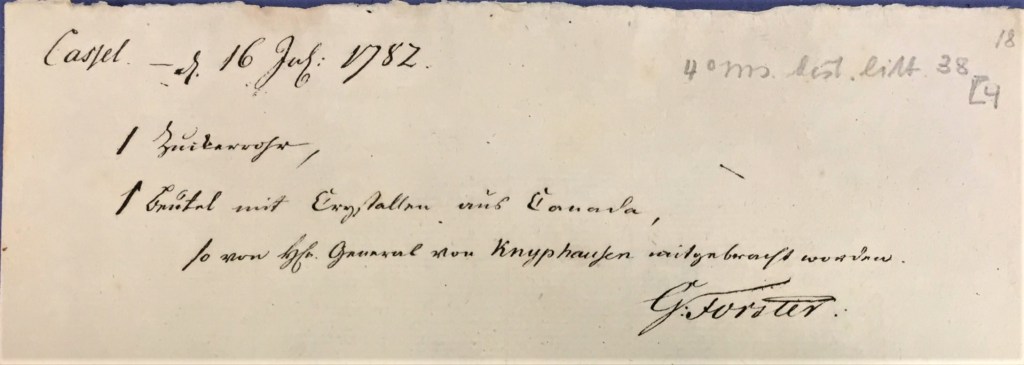 Cassel. — d. 16 Jul: 1782.
18
4° Ms. hist. litt. 38
[4
1 Zuckerrohr,
1 Beutel mit Crystallen aus Canada,
so von Hrn. General von Knyphausen mitgebracht worden.
G: Forster.